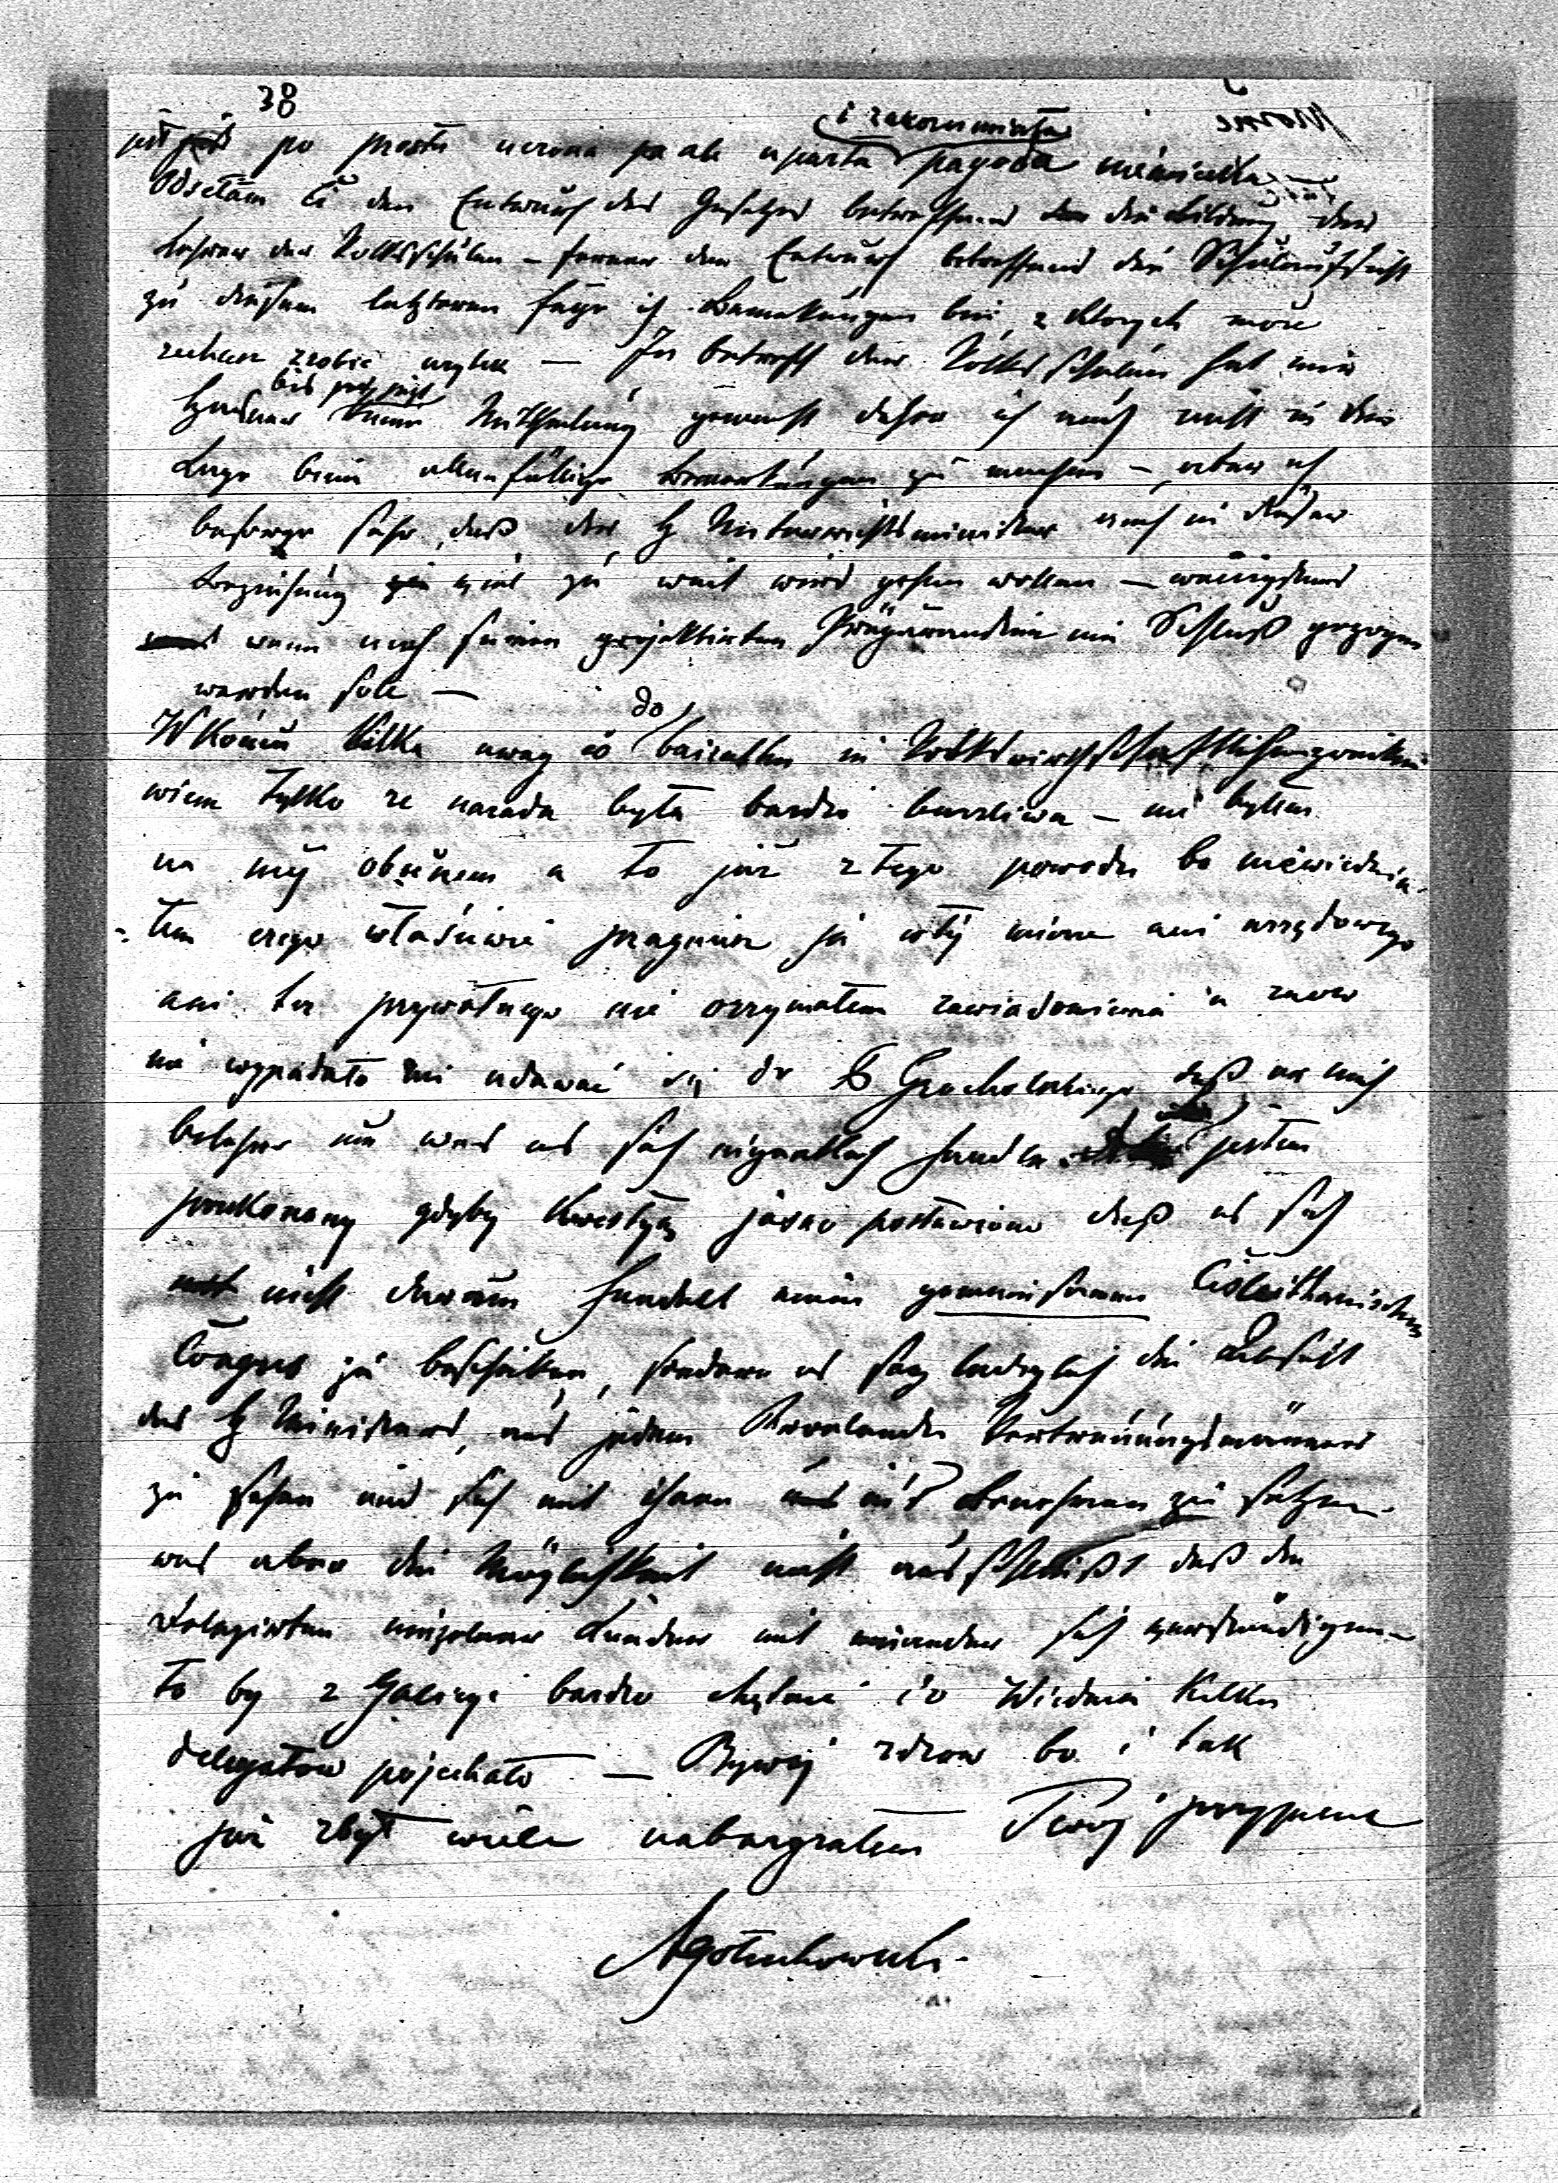 38
i zarozumiała
jest po prostu uczona ale uparta pagoda niemiecka
Odsełam Ci den Entwurf des Gesetzes betreffend die Bildung der
Lehrer der Volksschulen – ferner den Entwurf betreffend die Schulaufsicht
zu diesem letzteren füge ich Bemerkungen bei, z których może
zechcesz zrobić użytek — In betreff der Volksschulen hat mir
bis jetzt
Hasner keine Mittheilung gemacht daher ich auch nicht in der
Lage bin allenfällige Bemerkungen zu machen –, aber ich
besorge sehr, daß der H Unterrichtsminister auch in dieser
Beziehung viel zu weit wird gehen wollen — wenigstens
wenn nach seinen projektirten Präparandien ein Schluß gezogen
werden soll —
do
W końcu kilka uwag co in Volkswirthschaftlichen
wiem tylko że narada była bardzo burzliwa – nie byłem
na niej obecnem a to już z tego powodu bo niewiedzia-
-łem czego właściwie pragniesz ja w tej mierze ani urzędowego
ani też prywatnego nie otrzymałem zawiadomienia a znow
nie wypadało mi udawać się do Grocholskiego daß er mich
belehre um was es sich eigentlich handle jestem
przekonany gdyby kwestyę jasno postawiono daß es sich
nicht darum handelt einen gemeinsamen Cisleithanischen
Congres zu beschicken, sondern es sey lediglich die Absicht
des H Ministers, aus jedem Kronlande Vertrauungsmänner
zu sehen und sich mit ihnen ins Benehmen zu setzen
was aber die Möglichkeit nicht ausschließt daß die
Delegirten einzelner Länder mit einander sich verständigen –
to by z Galicyi bardzo chętnie i do Wiednia kilku
delegatów pojechało — Bywaj zdrow bo i tak
już zbyt wiele nabazgrałem — Twój przyjaciel
AGołuchowski